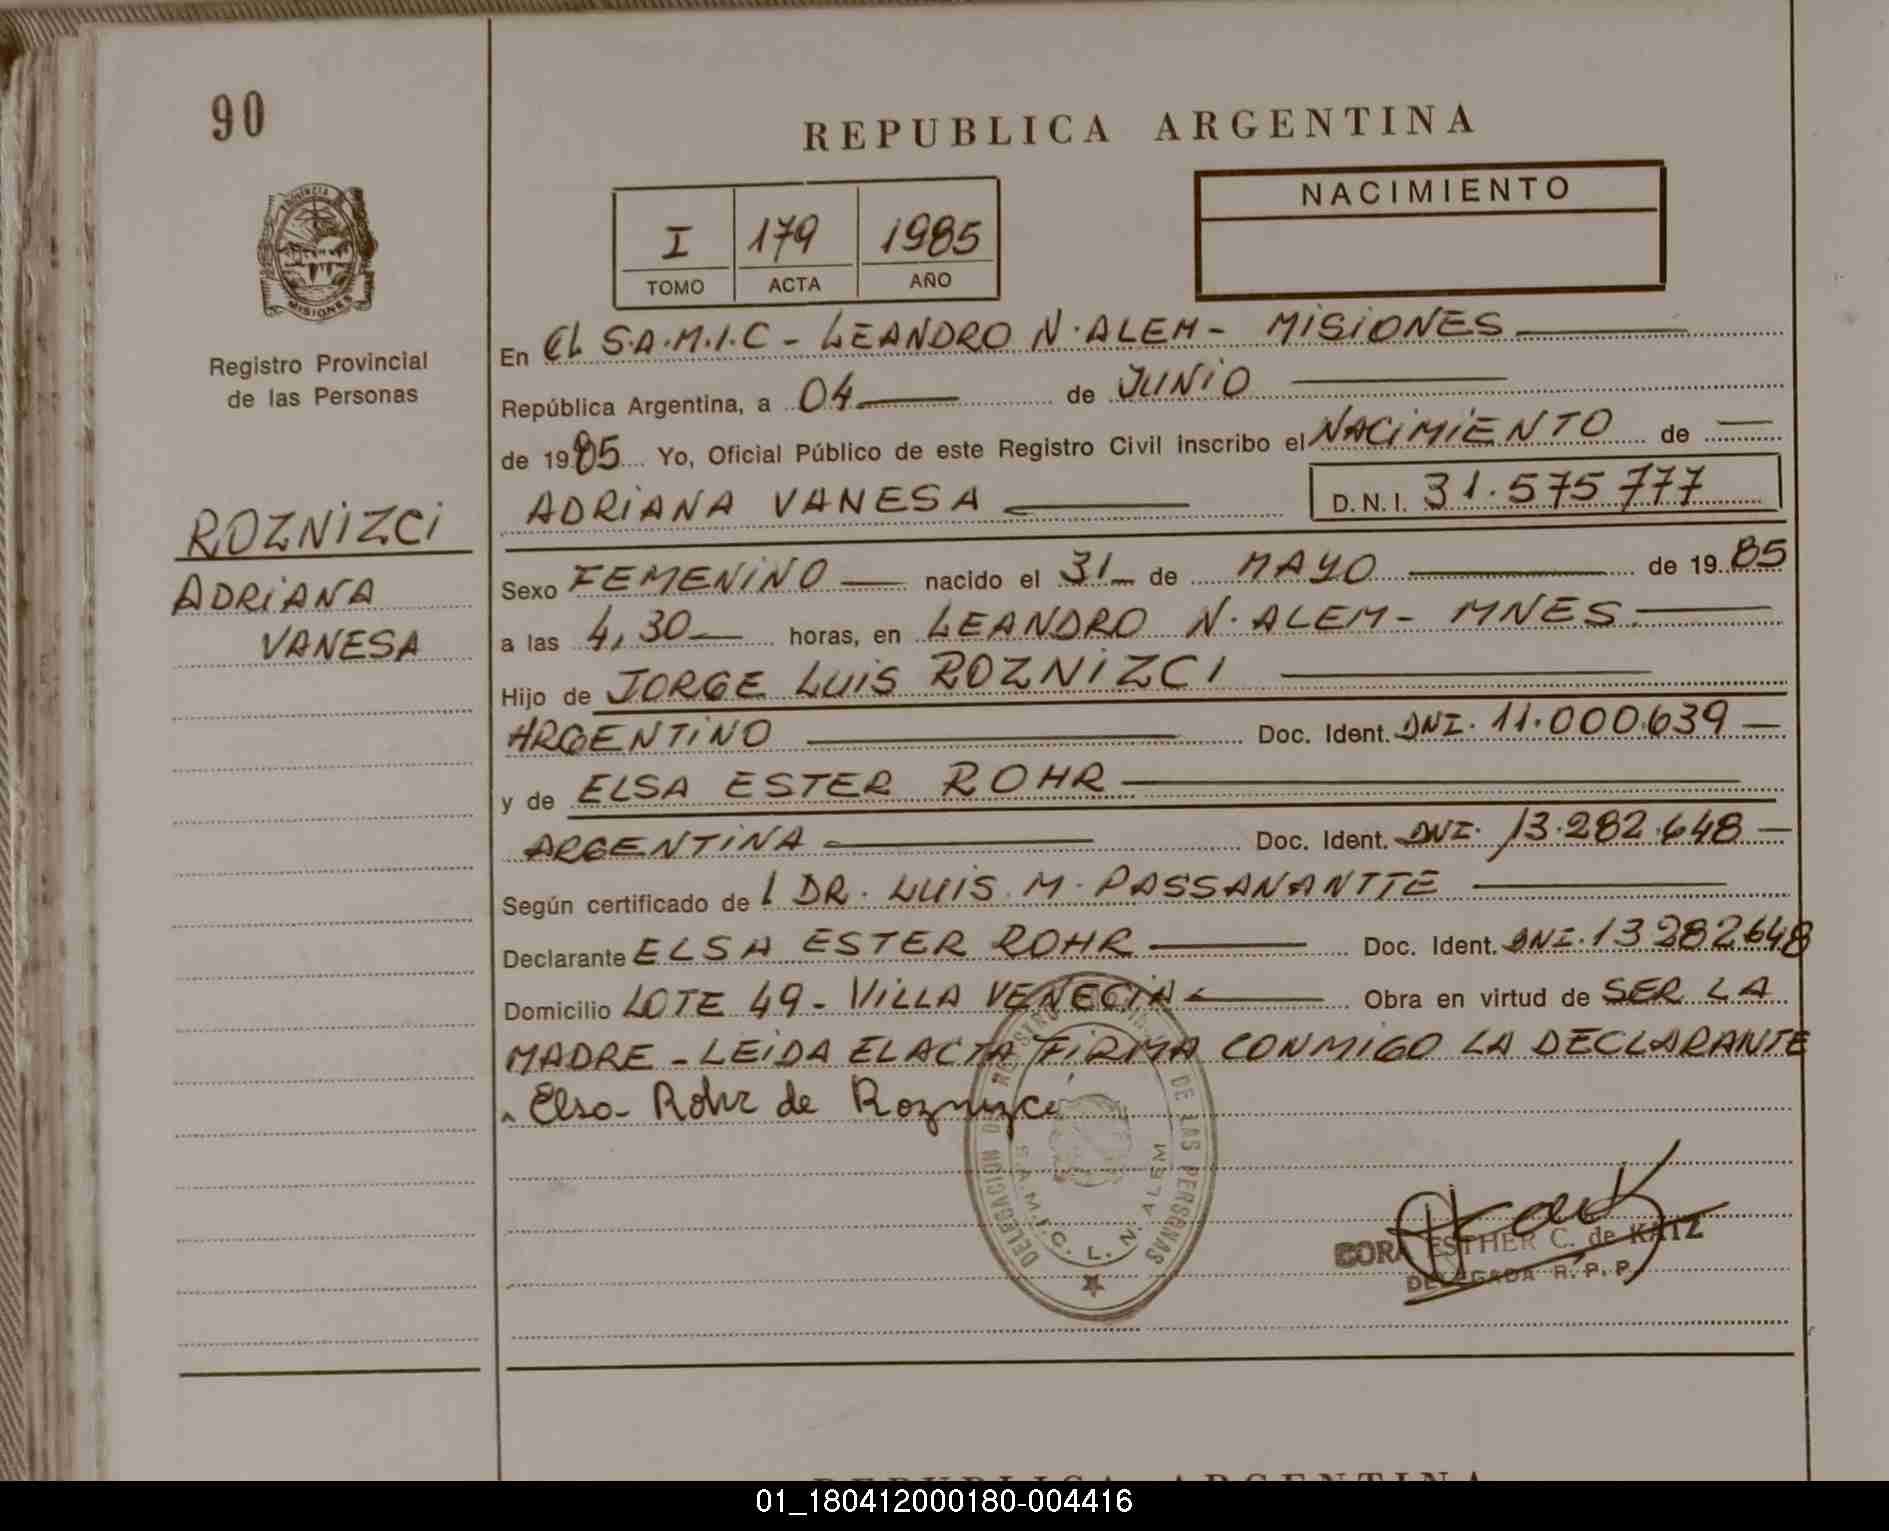 90
REPUBLICA ARGENTINA
NACIMIENTO
I 179 1985
TOMO ACTA AÑO
PROVINCIA DE
MISIONES
Registro Provincial
de las Personas
ROZNIZCI
ADRIANA
VANESA
En EL S.A.M.I.C - LEANDRO N. ALEM - MISIONES
República Argentina, a 04 de JUNIO
de 1985 Yo, Oficial Público de este Registro Civil inscribo el NACIMIENTO de
ADRIANA VANESA D.N.I. 31.575.777
Sexo FEMENINO nacido el 31 de MAYO de 1985
a las 4,30 horas, en LEANDRO N. ALEM - MNES.
Hijo de JORGE LUIS ROZNIZCI
ARGENTINO Doc. Ident. DNI. 11.000.639
y de ELSA ESTER ROHR
ARGENTINA Doc. Ident. DNI. 13.282.648
Según certificado de l DR. LUIS M. PASSANANTTE
Declarante ELSA ESTER ROHR Doc. Ident. DNI. 13282648
Domicilio LOTE 49 - VILLA VENECIA - Obra en virtud de SER LA
MADRE - LEIDA EL ACTA FIRMA CONMIGO LA DECLARANTE
Elsa Rohr de Roznizci
DELEGACION DE LAS PERSONAS
S.A.M.I.C. L. N. ALEM
CORA ESTHER C. de KATZ
DELEGADA R. P. P.
REPUBLICA ARGENTINA
01_180412000180-004416